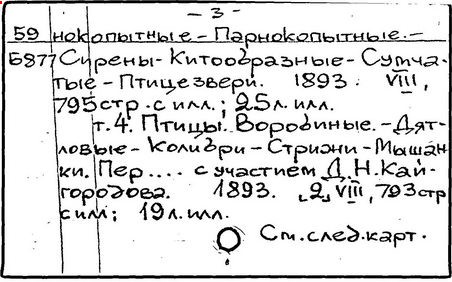 - 3 -
59 нокопытные.- Парнокопытные.-
Б877 Сирены- Китообразные- Сумча-
тые - Птицезвери. 1893. VIII,
795 стр. с илл.; 25 л. илл.
т.4. Птицы. Воробиные.- Дят-
ловые- Колибри- Стрижи- Мышан-
ки. Пер.... с участием Д.Н. Кай-
городова. 1893. „2„ VIII, 793 стр
с илл; 19 л. илл.
См. след. карт.